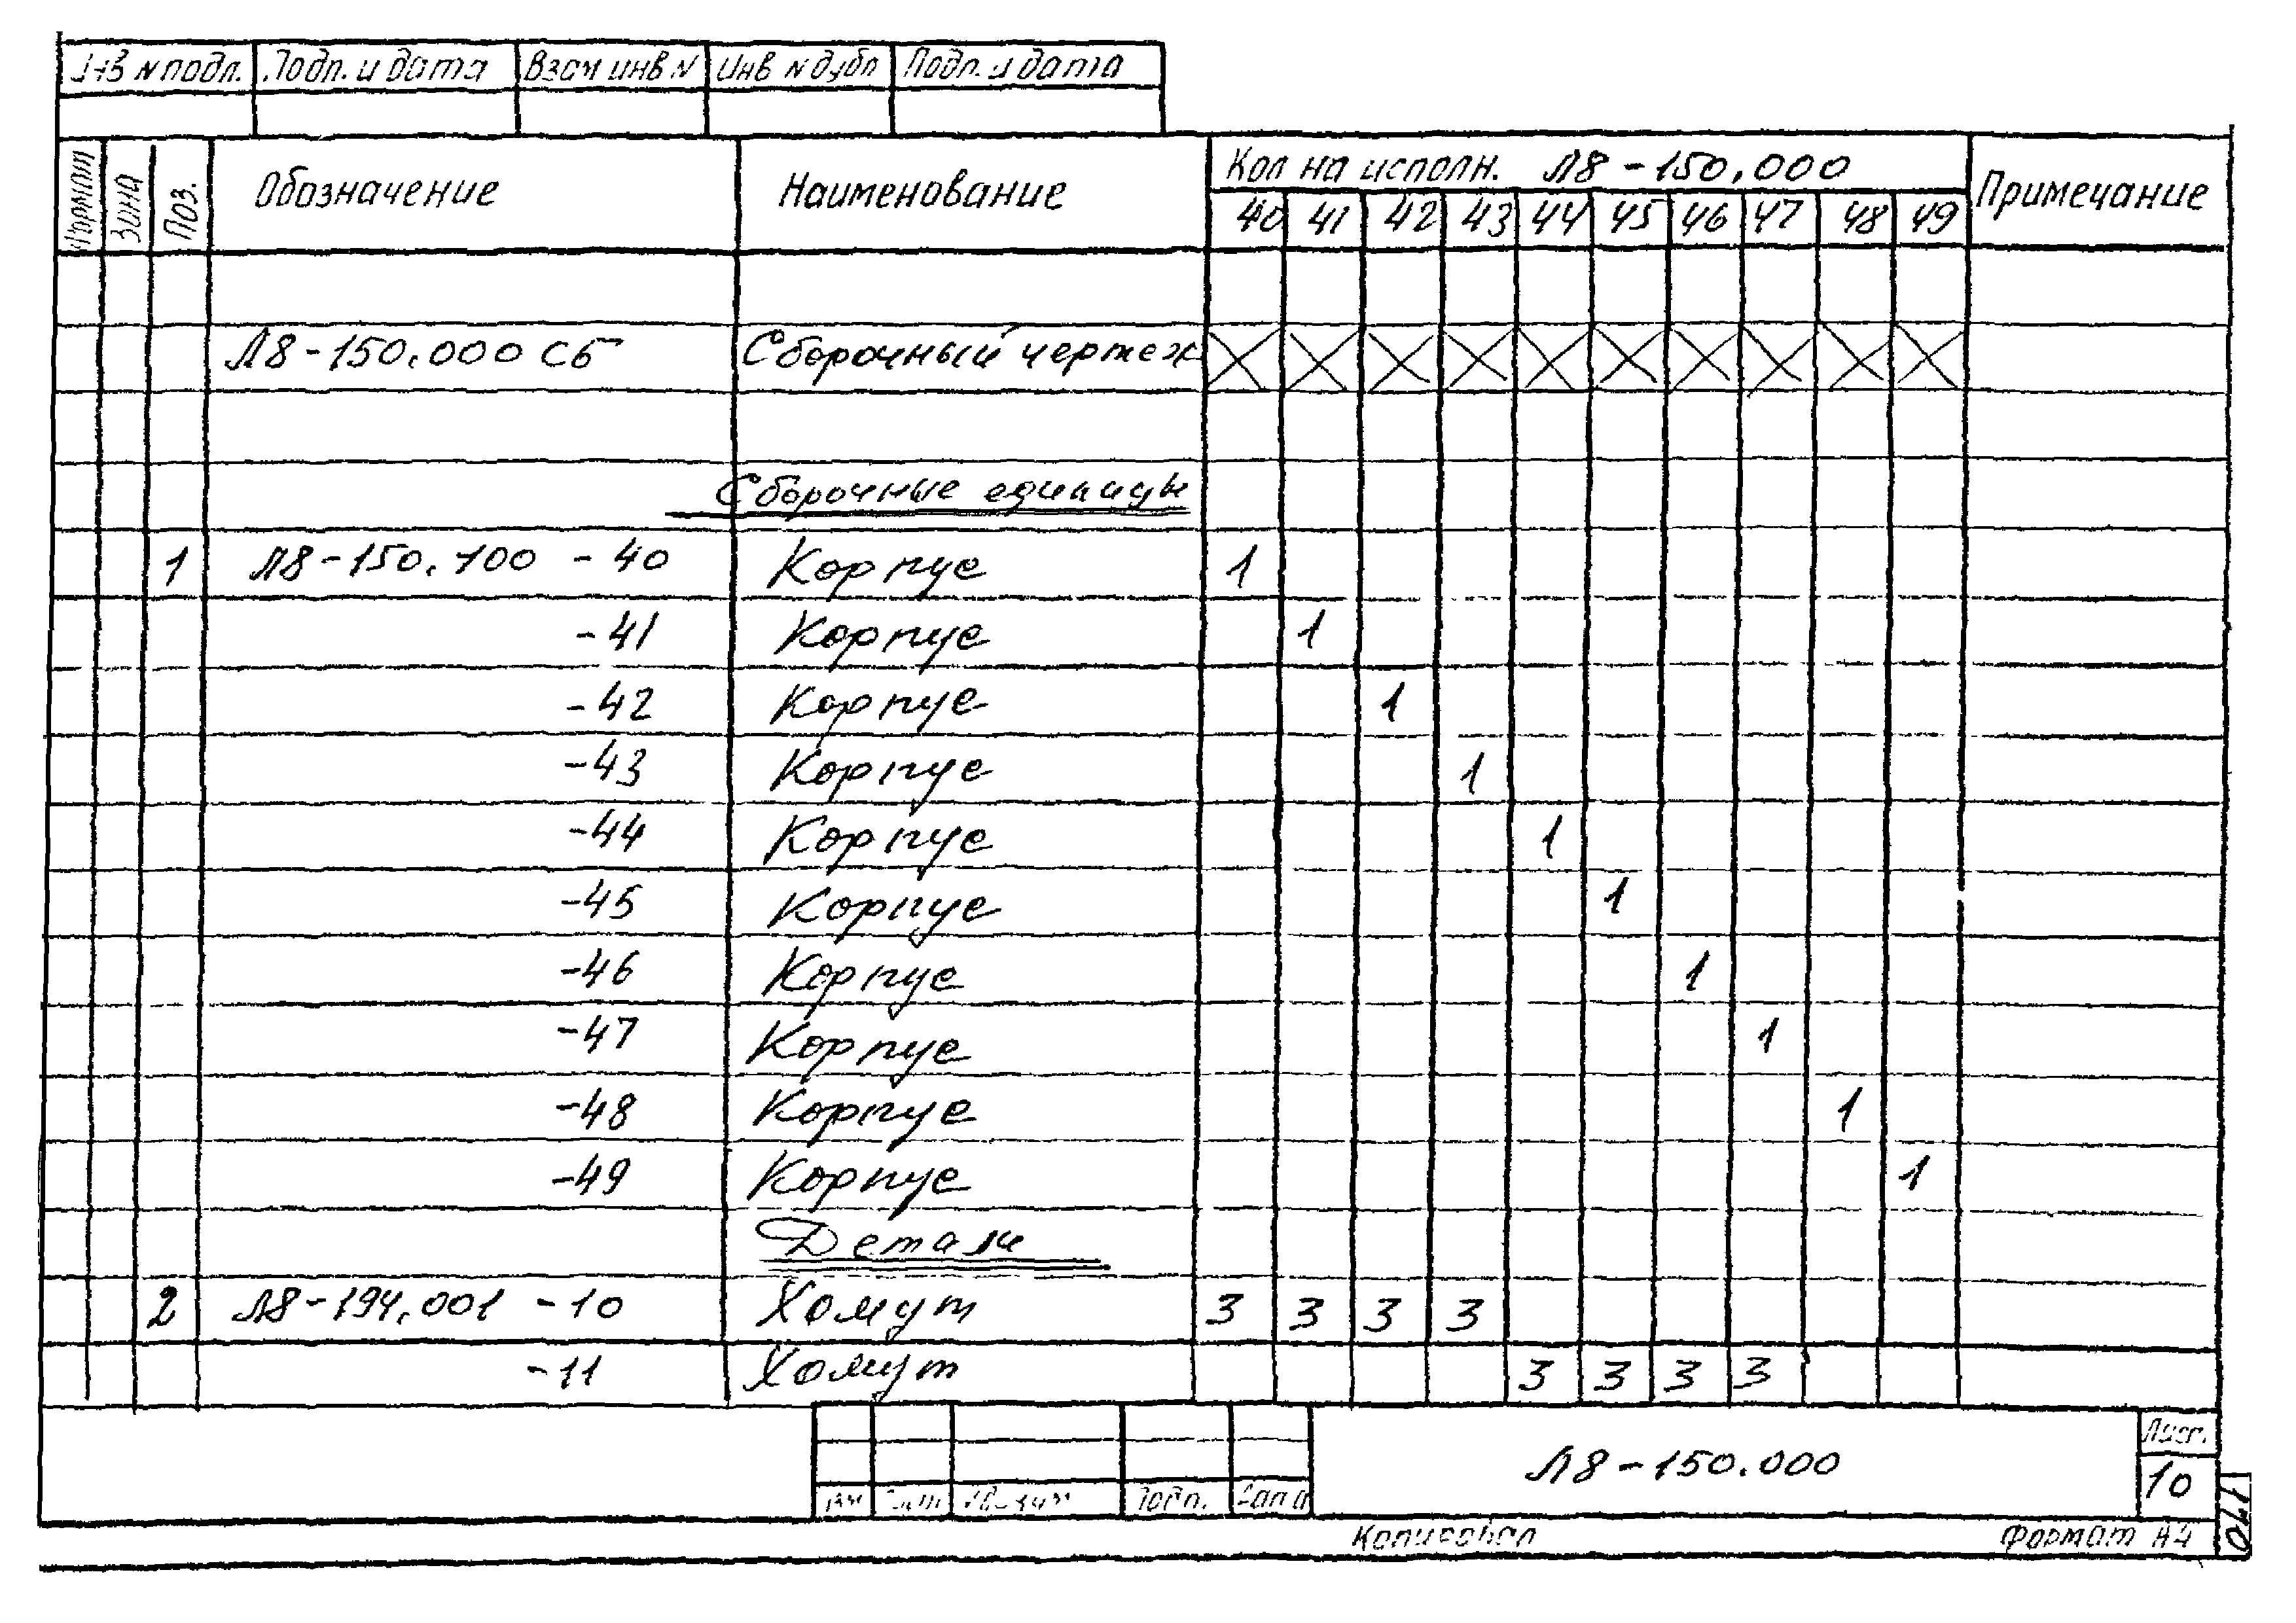 Инв N подл. Подп. и дата Взам инв N Инв N дубл Подп. и дата
Формат Зона Поз. Обозначение Наименование Кол на исполн. Л8-150.000 Примечание
40 41 42 43 44 45 46 47 48 49
Л8-150.000 СБ Сборочный чертеж
Сборочные единицы
1 Л8-150.100 -40 Корпус 1
-41 Корпус 1
-42 Корпус 1
-43 Корпус 1
-44 Корпус 1
-45 Корпус 1
-46 Корпус 1
-47 Корпус 1
-48 Корпус 1
-49 Корпус 1
Детали
2 Л8-194.001 -10 Хомут 3 3 3 3
-11 Хомут 3 3 3 3
Л8-150.000
Лист.
10
Подп. Дата
Копировал Формат А4
770